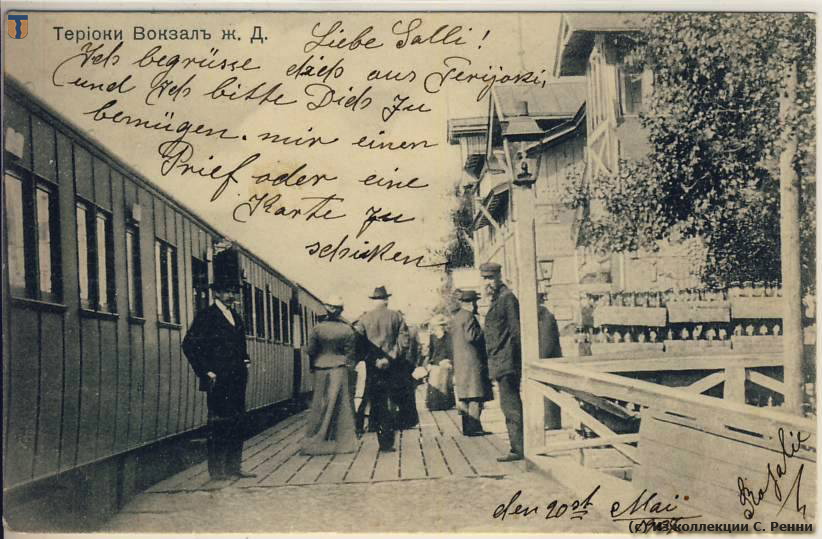 Теріоки Вокзалъ ж. Д.
Liebe Salli!
Ich begrüsse dich aus Terijoki,
und Ich bitte Dich zu
bemügen. mir einen
Prief oder eine
Karte zu
schicken
Rosalie
den 20st Mai
(с) из коллекции С. Ренни